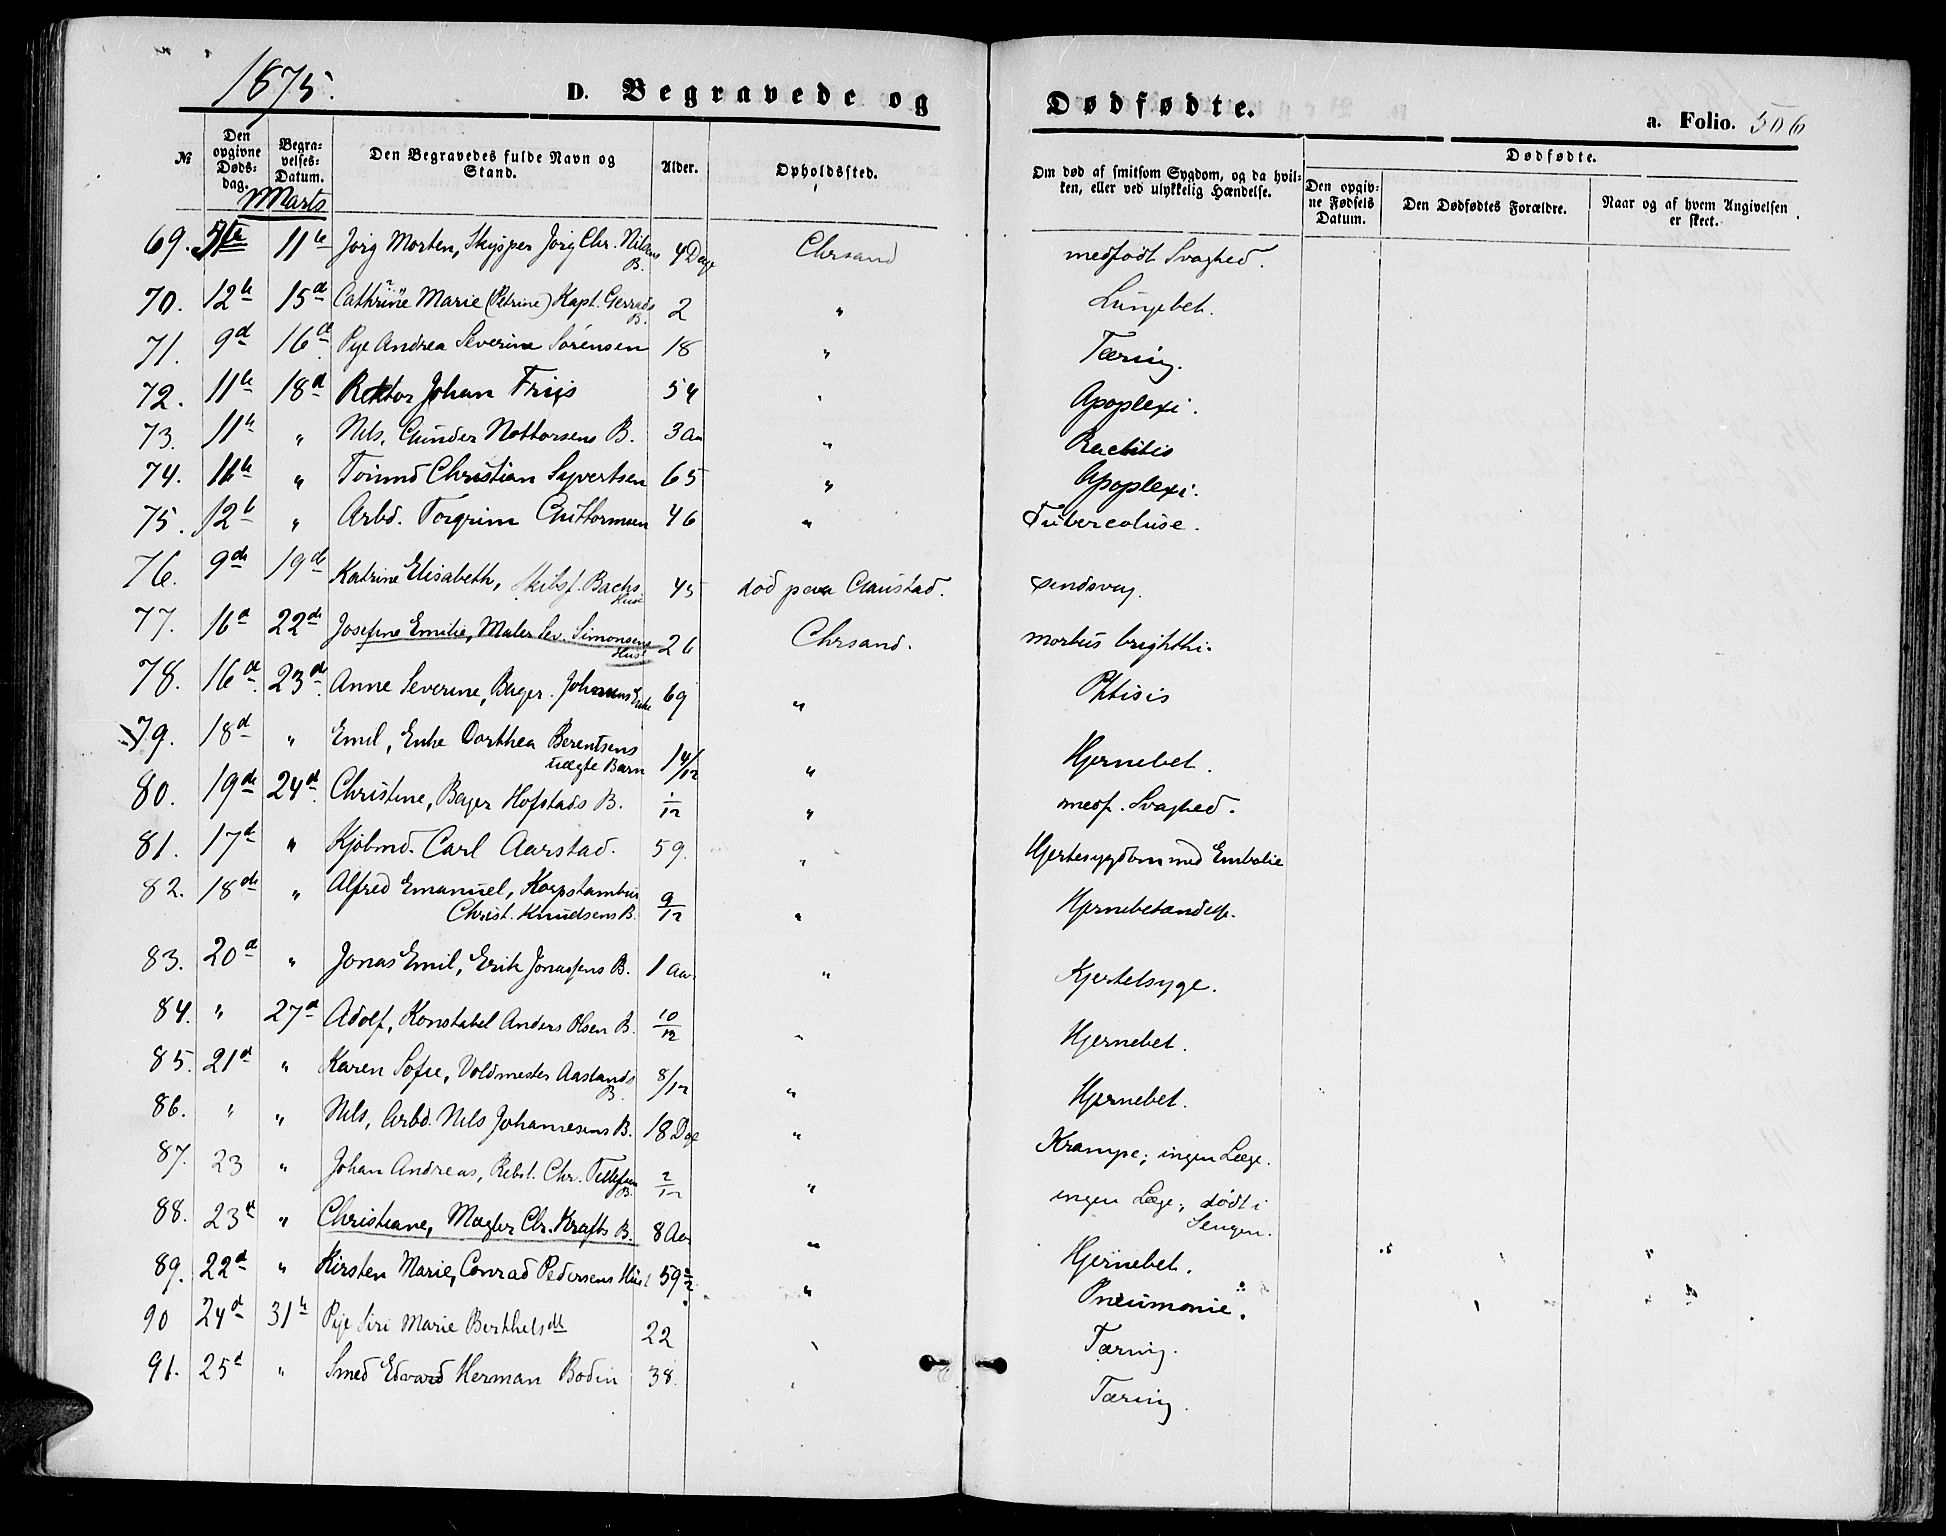 1875.
D. Begravede og Dødfødte.
a. Folio. 506
№ | Den opgivne Døds-dag. | Begra-velses-Datum. | Den Begravedes fulde Navn og Stand. | Alder. | Opholdssted. | Om død af smitsom Sygdom, og da hvil-ken, eller ved ulykkelig Hændelse. | Dødfødte. | Den opgiv-ne Fødsels Datum. | Den Dødfødtes Forældre. | Naar og af hvem Angivelsen er skeet.
Marts
69. 11te Jörg Morten, Skipper Jörg Chr. Nilsens B. 4 Dage Chrsand medfödt Svaghed.
70. 12te 15de Cathrine Marie (Petrine) Kapt. Gerrads B. 2 " Lungebet.
71. 9d 16d Pige Andrea Severine Sörensen 18 " Tæring.
72. 11te 18d Rektor Johan Friis 54 " Apoplexi.
73. 11te " Nils, Gunder Nottorsens B. 3 Aar " Rachitis
74. 11te " Tömmd Christian Syvertsen 65 " Apoplexi.
75. 12te " Arbd. Torgrim Guttormsen 46 " Tuberculose.
76. 9de 19de Katrine Elisabeth, Skibsf. Bachs Hust. 45 död paa Gaustad. sindsvag.
77. 16d 22de Josefine Emilie, Maler Sev. Simonsens Hust. 26 Chrsand. morbus brighthi.
78. 16d 23de Anne Severine, Bager Johnsens Enke 69 " Phtisis
79. 18d " Emil, Enke Dorthea Berentsens uægte Barn 14/12 " Hjernebet.
80. 19de 24d Christine, Bager Hofstads B. 1/12 " medf. Svaghed.
81. 17d " Kjöbmd. Carl Aarstad. 59. " Hjertesygdom med Embolie
82. 18de " Alfred Emanuel, Korpstambur Christ. Knudsens B. 9/12 " Hjernebetændelse.
83. 20d " Jonas Emil, Erik Jonassens B. 1 Aar. " Kjertelsyge.
84. " 27d Adolf, Konstabel Anders Olsen B. 10/12 " Hjernebet.
85. 21d " Karen Sofie, Voldmester Aaslands B. 8/12 " Hjernebet.
86. " " Nils, Arbd. Nils Johannesens B. 18 Dage " Krampe; ingen Læge.
87. 23 " Johan Andreas, Rebsl. Chr. Tellefsen B. 2/12 " ingen Læge, dödt i Sengen.
88. 23d " Christiane, Mægler Chr. Krafts B. 8 Aar " Hjernebet.
89. 22d " Kirsten Marie, Conrad Pedersens Hust 59 1/2 " Pneumonie.
90 24d 31te Pige Siri Marie Berthelsdt 22 " Tæring.
91. 25d " Smed Edvard Herman Bodin 38. " Tæring.